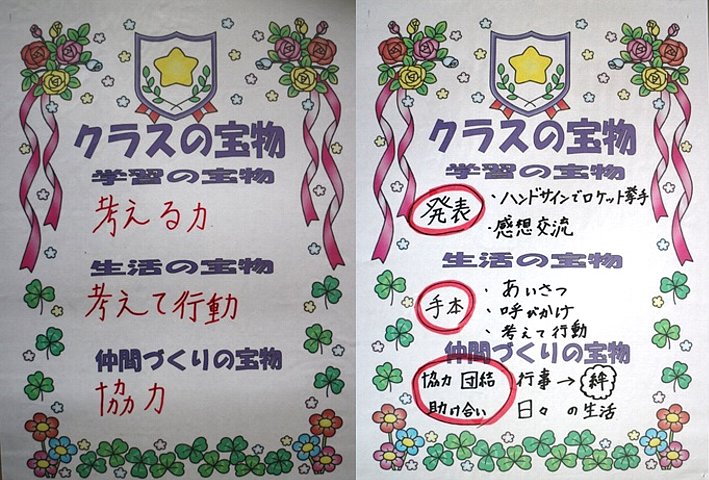 クラスの宝物
学習の宝物
考える力
生活の宝物
考えて行動
仲間づくりの宝物
協力
クラスの宝物
学習の宝物
発表
・ハンドサインでロケット挙手
・感想交流
生活の宝物
手本
・あいさつ
・呼びかけ
・考えて行動
仲間づくりの宝物
協力 団結 行事→絆
助け合い 日々の生活